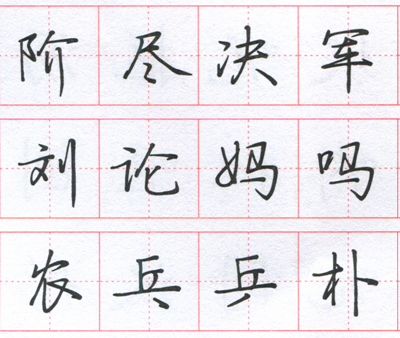 阶尽决军
刘论妈吗
农乓乒朴